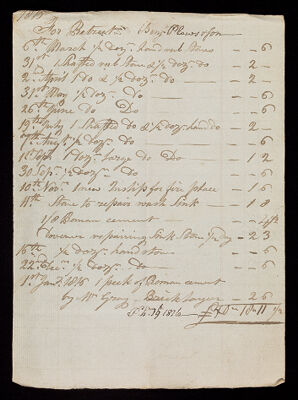 1815
For Retreat Benj. Plowson
6th March ½ doz. hand and Stones - - 6
31st 1 Shafted and Stone & ½ doz. do - 2 -
2d April 1 do & ½ doz. do - 2 -
31st May ½ doz. do - - 6
26th June do Do - - 6
19th July 1 Shafted do & ½ doz. hand do - 2 -
7th Augt ½ doz. do - - 6
1st Sept 1 doz. large do Do - 1 2
30 Sep. ½ doz. do - - 6
10th Novr 1 new for fire place - 1 6
11th Stone to repair wash Sink - 1 8
1/8 Roman cement
repairing Sink Stone ½ Day - 2 3
16th ½ doz. hand stone - - 6
22nd Decr ½ doz. do - - 6
1st Jany 1816 1 peck of Roman cement
by Wm Gray Bricklayer - 2 6
1816 £ 18 11 ½